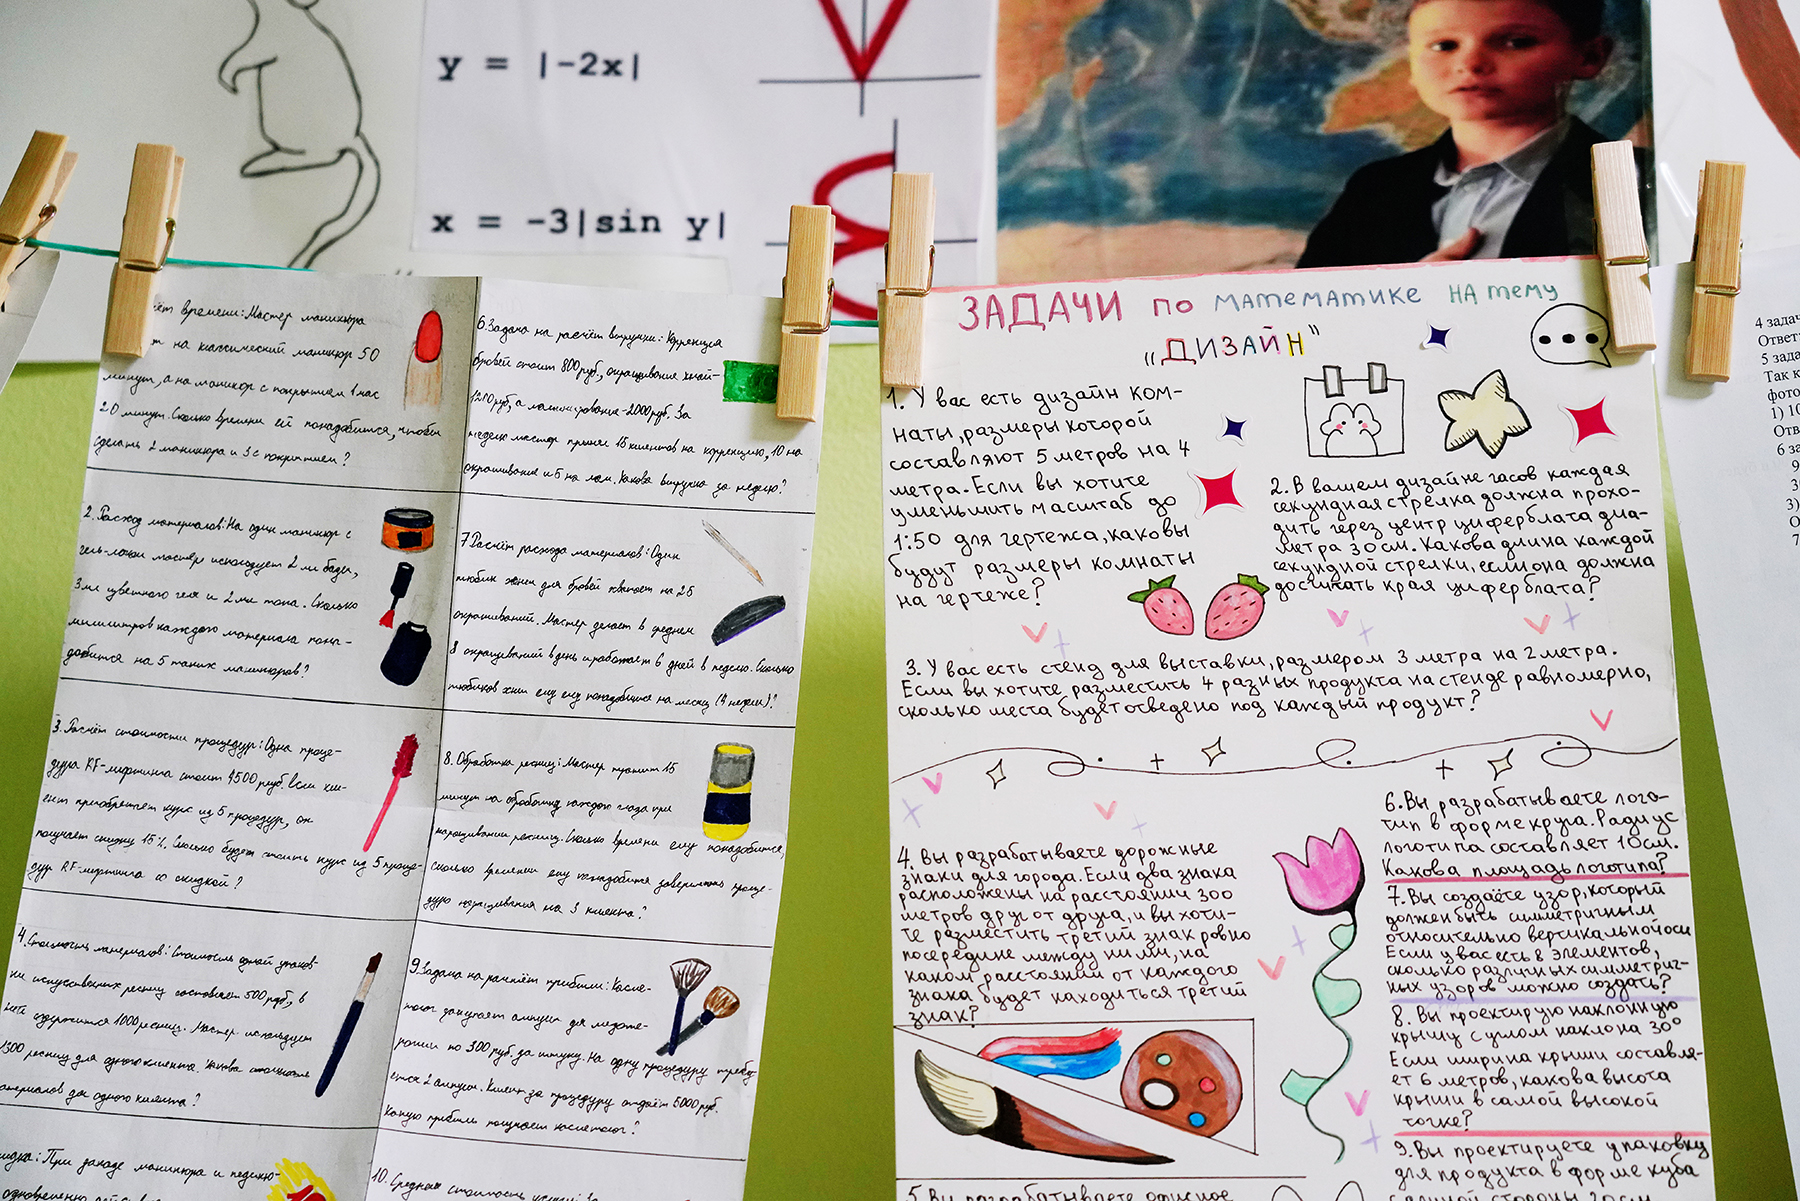 y = |-2x|
x = -3|sin y|
времени: Мастер маникюра
на классический маникюр 50
минут, а на маникюр с покрытием 1 час
20 минут. Сколько времени ей понадобится, чтобы
сделать 2 маникюра и 3 с покрытием?
2. Расход материалов: На один маникюр с
гель-лаком мастер использует 2 мл базы,
3 мл цветного геля и 2 мл топа. Сколько
миллилитров каждого материала пона-
добится на 5 таких маникюров?
3. Расчёт стоимости процедур: Одна проце-
дура RF-лифтинга стоит 4500 руб. Если кли-
ент приобретает курс из 5 процедур, он
получает скидку 15%. Сколько будет стоить курс из 5 проце-
дур RF-лифтинга со скидкой?
4. Стоимость материалов: Стоимость одной упаков-
ки искусственных ресниц составляет 500 руб., в
ней содержится 1000 ресниц. Мастер использует
300 ресниц для одного клиента. Какова стоимость
материалов для одного клиента?
При заказе маникюра и педикю-
6. Задача на расчёт выручки: Коррекция
бровей стоит 800 руб., окрашивание хной-
1200 руб, а ламинирование-2000 руб. За
неделю мастер принял 15 клиентов на коррекцию, 10 на
окрашивание и 5 на лам. Какова выручка за неделю?
7. Расчёт расхода материалов: Один
тюбик хны для бровей хватает на 25
окрашиваний. Мастер делает в среднем
8 окрашиваний в день и работает 6 дней в неделю. Сколько
тюбиков хны ему понадобится на месяц (4 недели)?
8. Обработка ресниц: Мастер тратит 15
минут на обработку каждого глаза при
наращивании ресниц. Сколько времени ему понадобится,
сколько времени ему понадобится завершить проце-
дуру наращивания на 3 клиента?
9. Задача на расчёт прибыли: Косме-
толог закупает ампулы для мезоте-
рапии по 300 руб. за штуку. На одну процедуру требу-
ется 2 ампулы. Клиент за процедуру отдаёт 5000 руб.
Какую прибыль получает косметолог?
10. Средняя стоимость
ЗАДАЧИ по математике на тему
„ДИЗАЙН"
1. У вас есть дизайн ком-
наты, размеры которой
составляют 5 метров на 4
метра. Если вы хотите
уменьшить масштаб до
1:50 для чертежа, каковы
будут размеры комнаты
на чертеже?
2. В вашем дизайне часов каждая
секундная стрелка должна прохо-
дить через центр циферблата диа-
метра 30 см. Какова длина каждой
секундной стрелки, если она должна
достигать края циферблата?
3. У вас есть стенд для выставки, размером 3 метра на 2 метра.
Если вы хотите разместить 4 разных продукта на стенде равномерно,
сколько места будет отведено под каждый продукт?
4. Вы разрабатываете дорожные
знаки для города. Если два знака
расположены на расстоянии 300
метров друг от друга, и вы хоти-
те разместить третий знак ровно
посередине между ними, на
каком расстоянии от каждого
знака будет находиться третий
знак?
5. Вы разрабатываете офисное
6. Вы разрабатываете лого-
тип в форме круга. Радиус
логотипа составляет 10 см.
Какова площадь логотипа?
7. Вы создаёте узор, который
должен быть симметричным
относительно вертикальной оси
Если у вас есть 8 элементов,
сколько различных симметрич-
ных узоров можно создать?
8. Вы проектирую наклонную
крышу с углом наклона 30°
Если ширина крыши составля-
ет 6 метров, какова высота
крыши в самой высокой
точке?
9. Вы проектируете упаковку
для продукта в форме куба
с длиной стороны 20 см
4 задач
Ответ
5 зада
Так к
фото
1) 10
Отв
6 за
9
3
3)
О
7